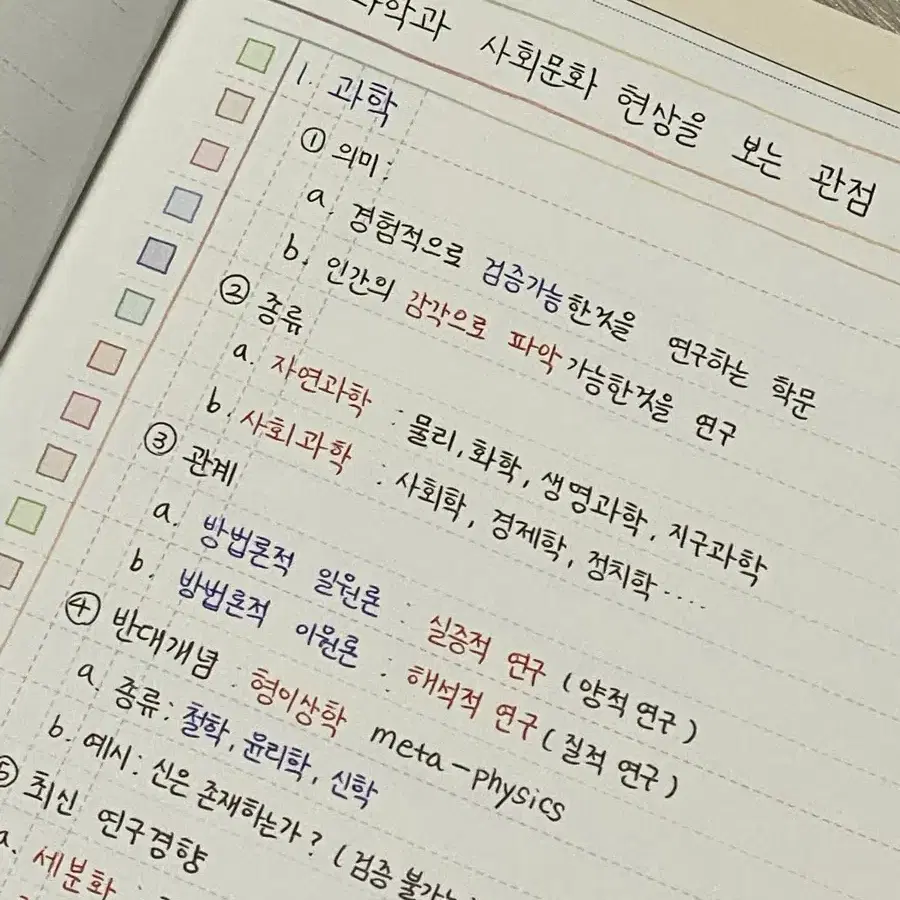 사회문화 현상을 보는 관점
1. 과학
① 의미:
a. 경험적으로 검증가능한것을 연구하는 학문
b. 인간의 감각으로 파악 가능한것을 연구
② 종류
a. 자연과학 : 물리, 화학, 생명과학, 지구과학
b. 사회과학 : 사회학, 경제학, 정치학.....
③ 관계
a. 방법론적 일원론 : 실증적 연구 (양적 연구)
b. 방법론적 이원론 : 해석적 연구 (질적 연구)
④ 반대개념 : 형이상학 meta-physics
a. 종류: 철학, 윤리학, 신학
b. 예시: 신은 존재하는가? (검증
⑤ 최신 연구경향
a. 세분화 :